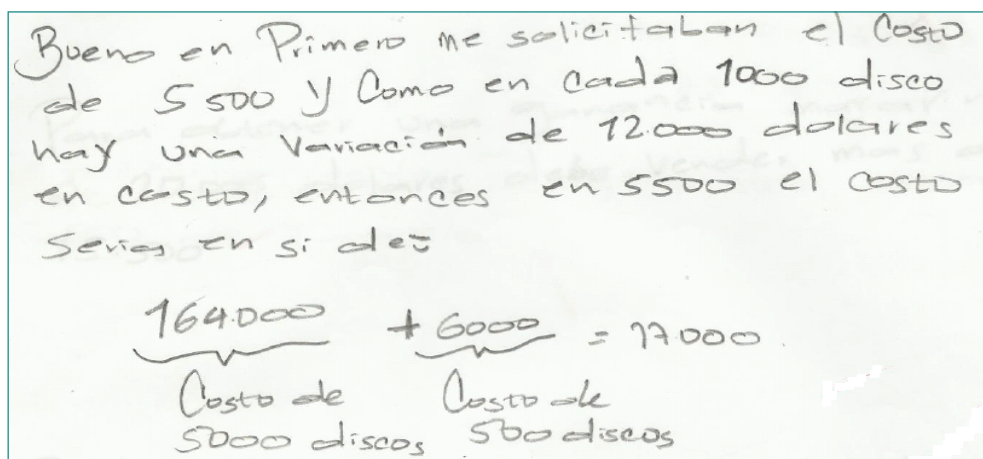 Bueno en Primero me solicitaban el Costo
de 5500 y Como en cada 1000 disco
hay una variación de 12.000 dolares
en costo, entonces en 5500 el costo
Serias en si de:
164.000 + 6000 = 17.000.
Costo de Costo de
5000 discos 500 discos